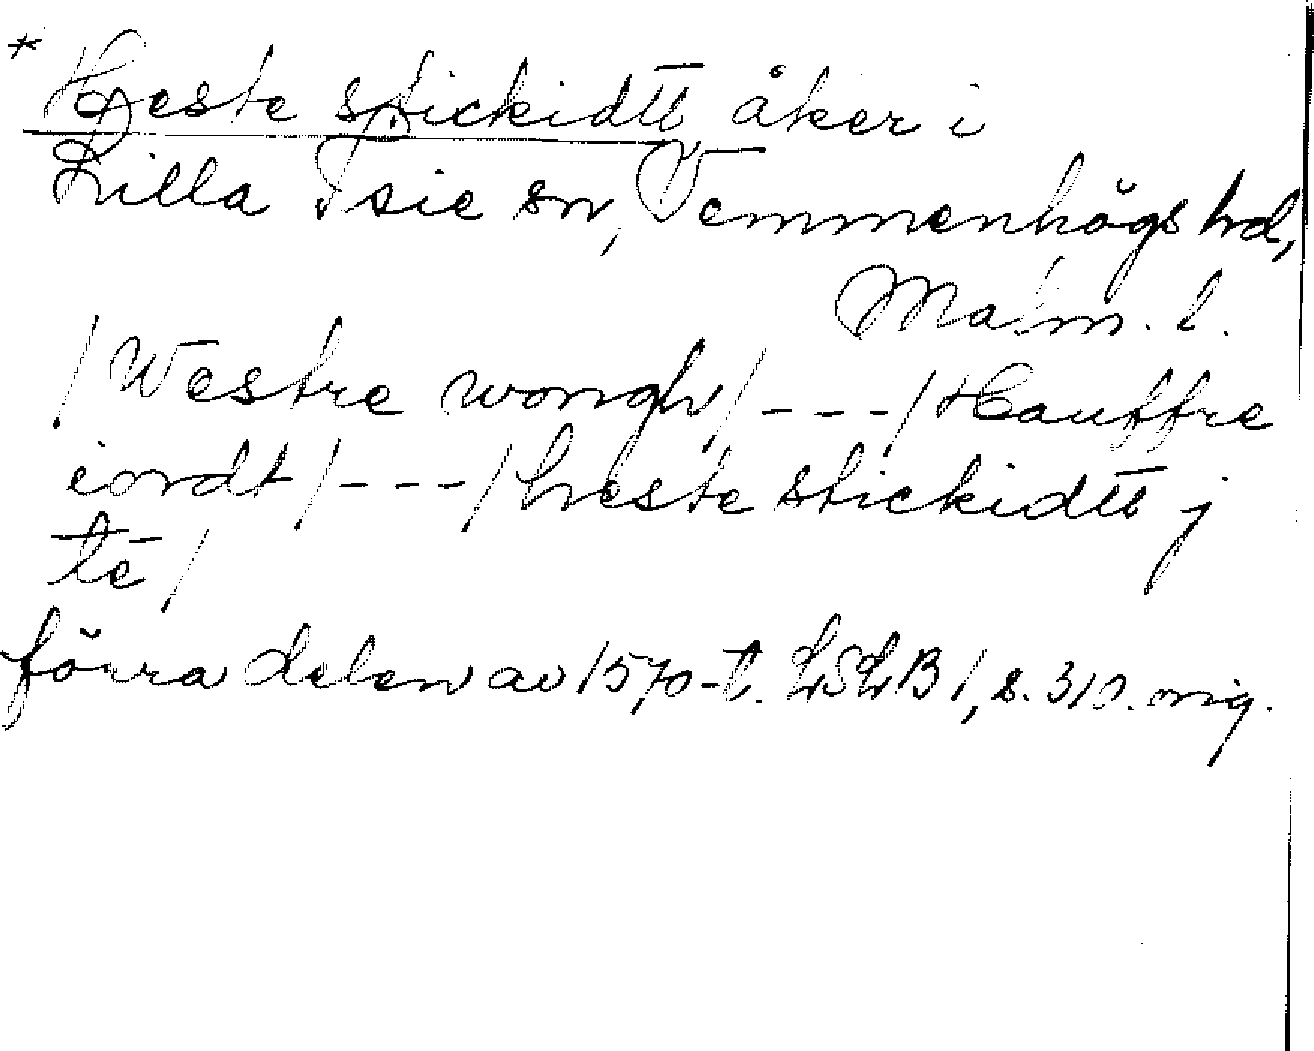 * Heste stickidtt åker i
Lilla Isie sn, Vemmenhögs hd,
Malm. l.
/Westre wongh/ --- /Hauffre
iordt/ --- /heste stickidtt j
tē/
förra delen av 1570-t. LSLB 1, s. 310. orig.